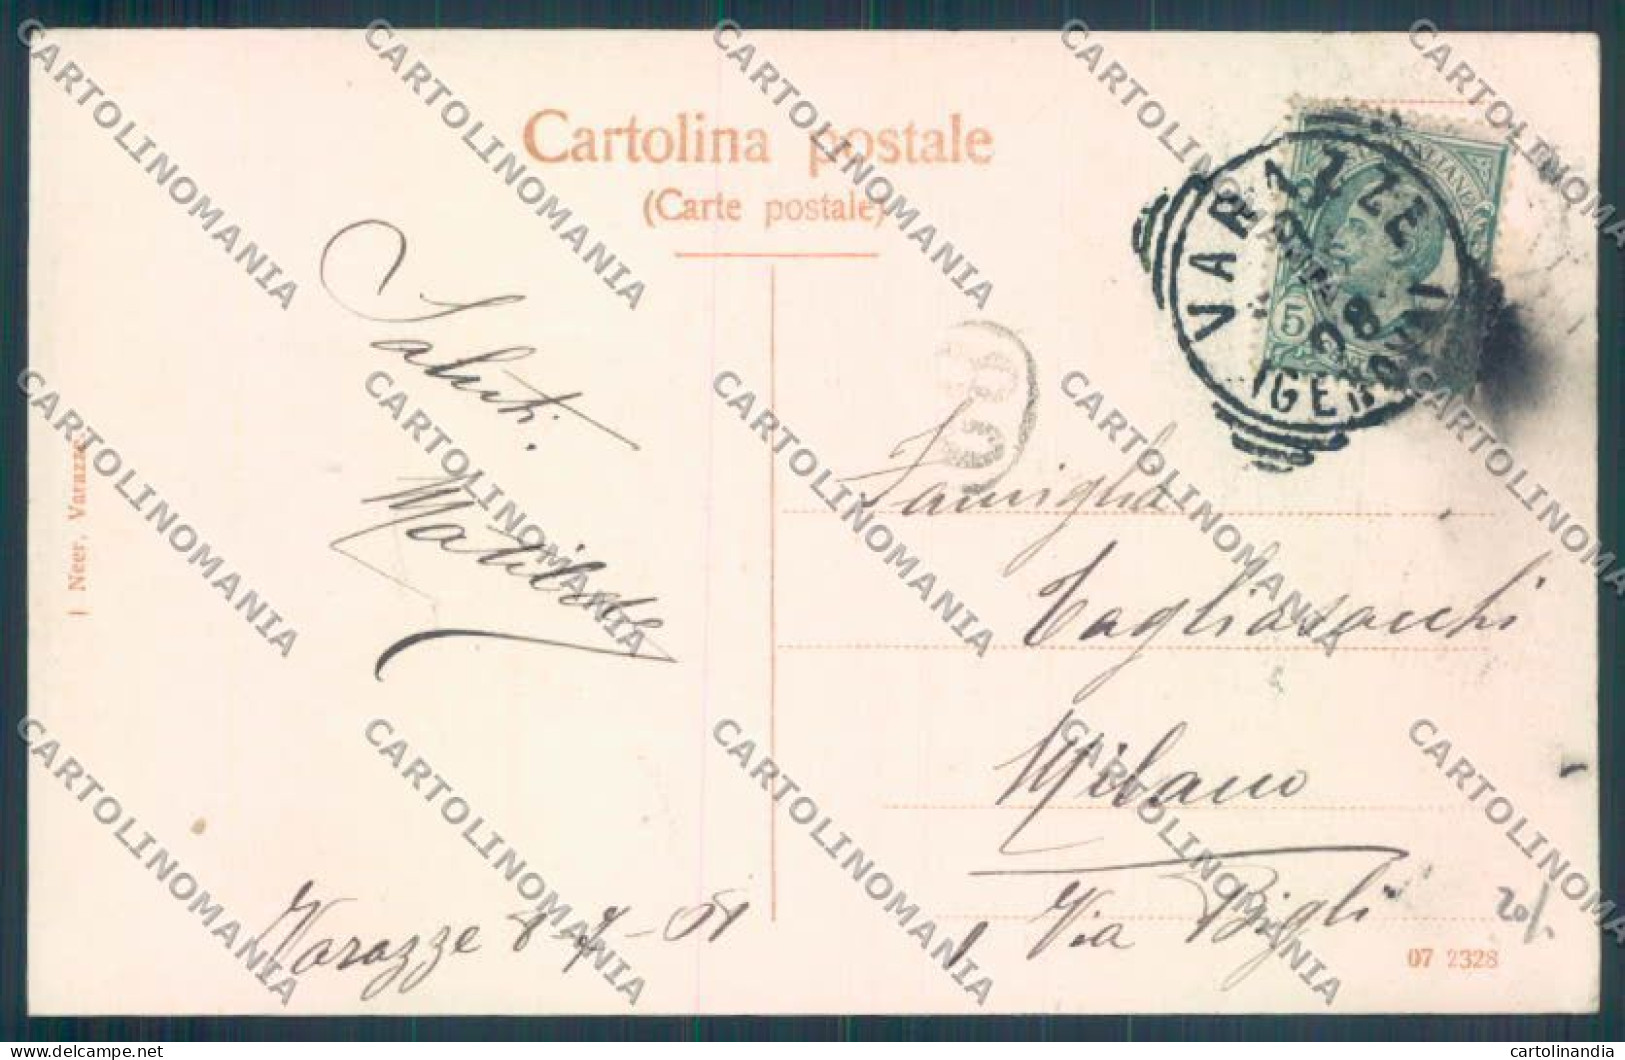 Cartolina postale
(Carte postale)
VARAZZE
(GENOVA)
08
5
Saluti.
Matilde
Famiglia
Tagliasacchi
Milano
Via Bigli
20/
Varazze 8-7-08
1 Neer, Varazze
07 2328
CARTOLINOMANIA
cartolinandia